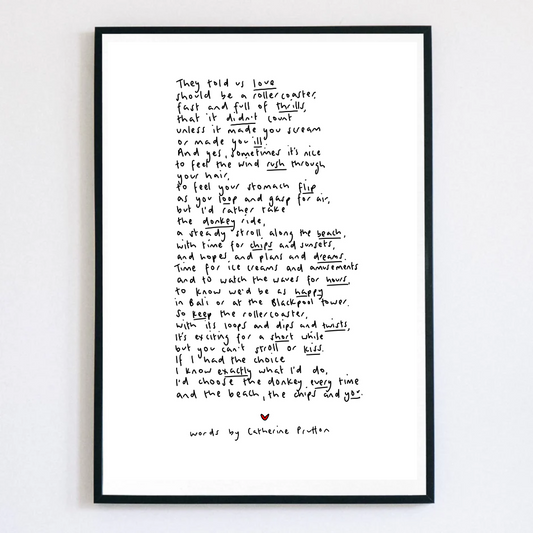 They told us love
should be a rollercoaster,
fast and full of thrills,
that it didn't count
unless it made you scream
or made you ill.
And yes, sometimes it's nice
to feel the wind rush through
your hair,
to feel your stomach flip
as you loop and gasp for air,
but I'd rather take
the donkey ride,
a steady stroll along the beach,
with time for chips and sunsets,
and hopes and plans and dreams.
Time for ice creams and amusements
and to watch the waves for hours,
to know we'd be as happy
in Bali or at the Blackpool Tower.
So keep the rollercoaster,
with its loops and dips and twists,
It's exciting for a short while
but you can't stroll or kiss.
If I had the choice
I know exactly what I'd do,
I'd choose the donkey every time
and the beach, the chips and you.
words by Catherine Prutton